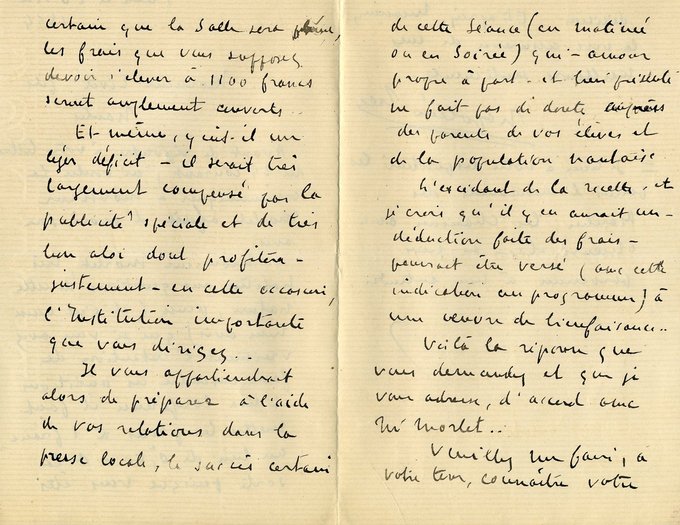 certain que la Salle sera pleine,
les frais que vous supposez
devoir s'élever à 1100 francs
seront amplement couverts..
Et même, y eût-il un
léger déficit - il serait très
largement compensé par la
publicité spéciale et de très
bon aloi dont profitera -
justement - en cette occasion,
l'Institution importante
que vous dirigez..
Il vous appartiendrait
alors de préparer à l'aide
de vos relations dans la
presse locale, le succès certain
de cette Séance (en matinée
ou en Soirée) qui - amour
propre à part - et
ne fait pas de doute auprès
des parents de vos élèves et
de la population nantaise
L'excédent de la recette - et
je crois qu'il y en aurait un -
déduction faite des frais -
pourrait être versé (avec cette
indication au programme) à
une oeuvre de bienfaisance..
Voilà la réponse que
vous demandez et que je
vous adresse, d'accord avec
Mr Morlet..
Veuillez me faire, à
votre tour, connaître votre